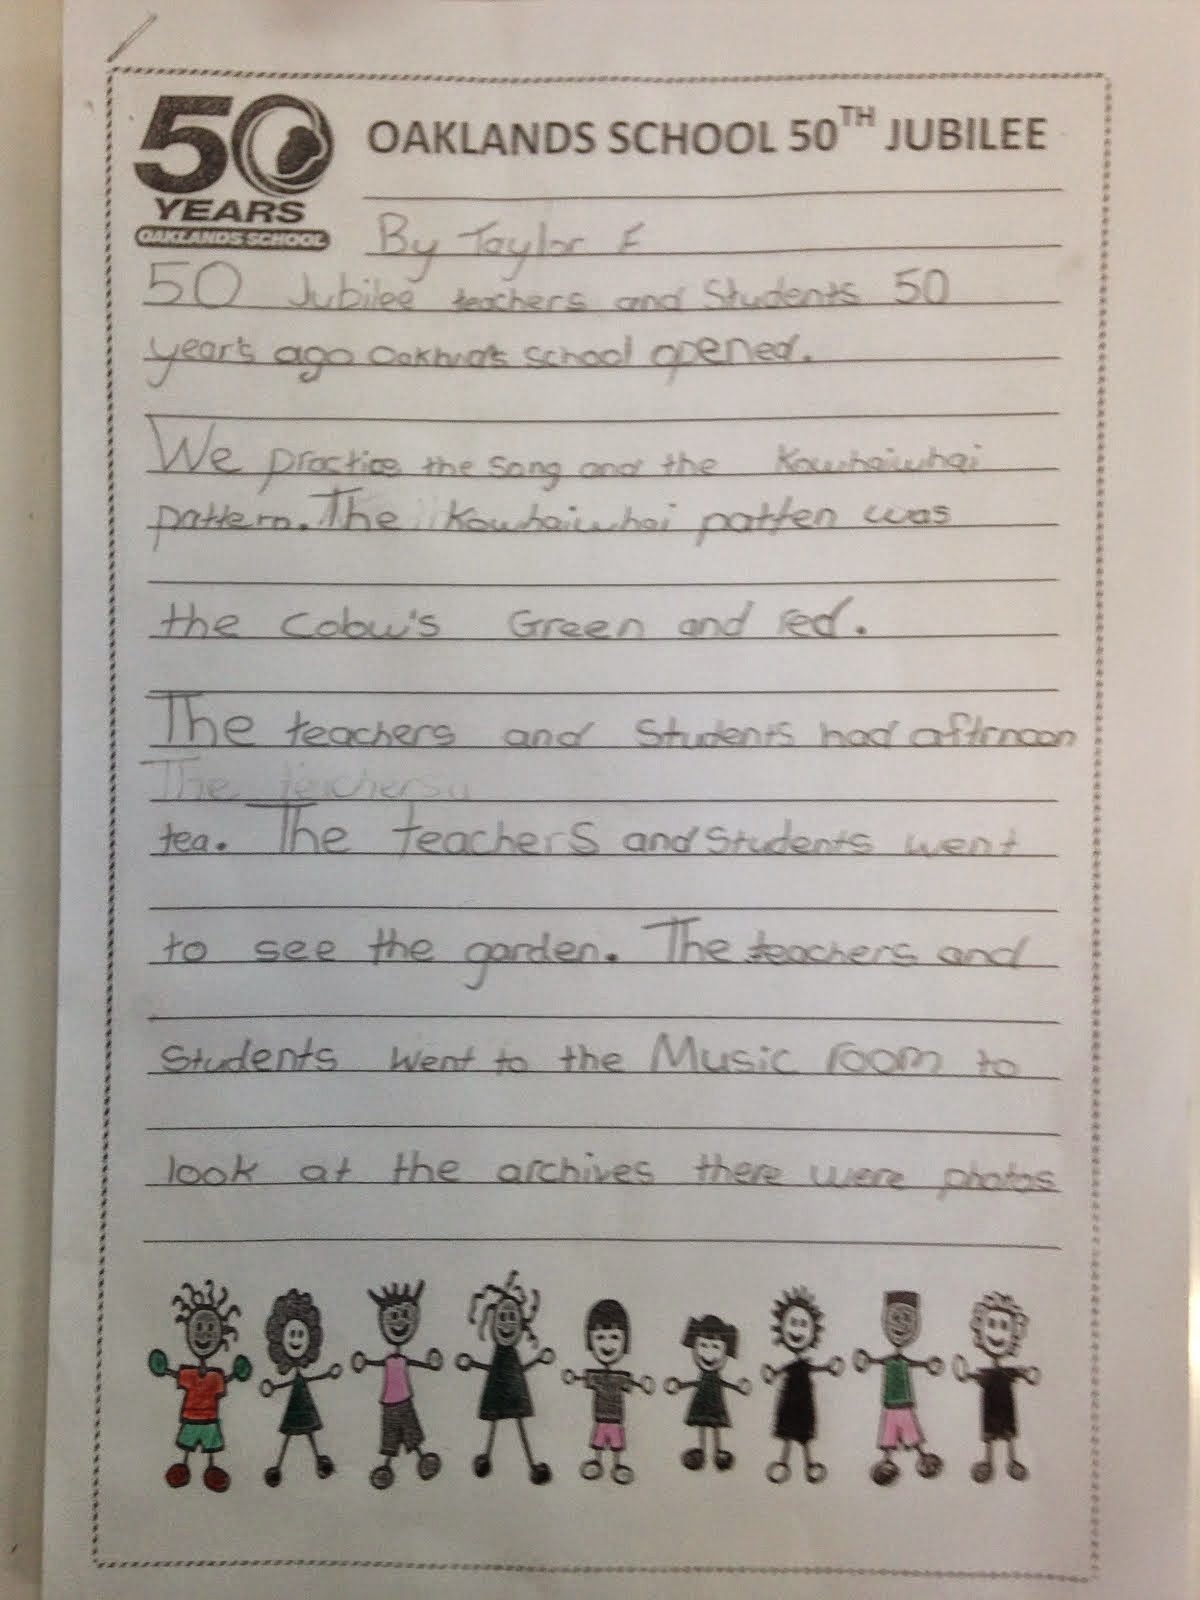 50
YEARS
OAKLANDS SCHOOL
OAKLANDS SCHOOL 50TH JUBILEE
By Taylor F
50 Jubilee teachers and Students 50
years ago school opened.
We practice the song and the Kowhaiwhai
pattern. The Kowhaiwhai patten was
the Green and red.
The teachers and Students had aftrnoon
The teachers
tea. The teachers and Students went
to see the garden. The teachers and
Students went to the Music room to
look at the archives there were photos